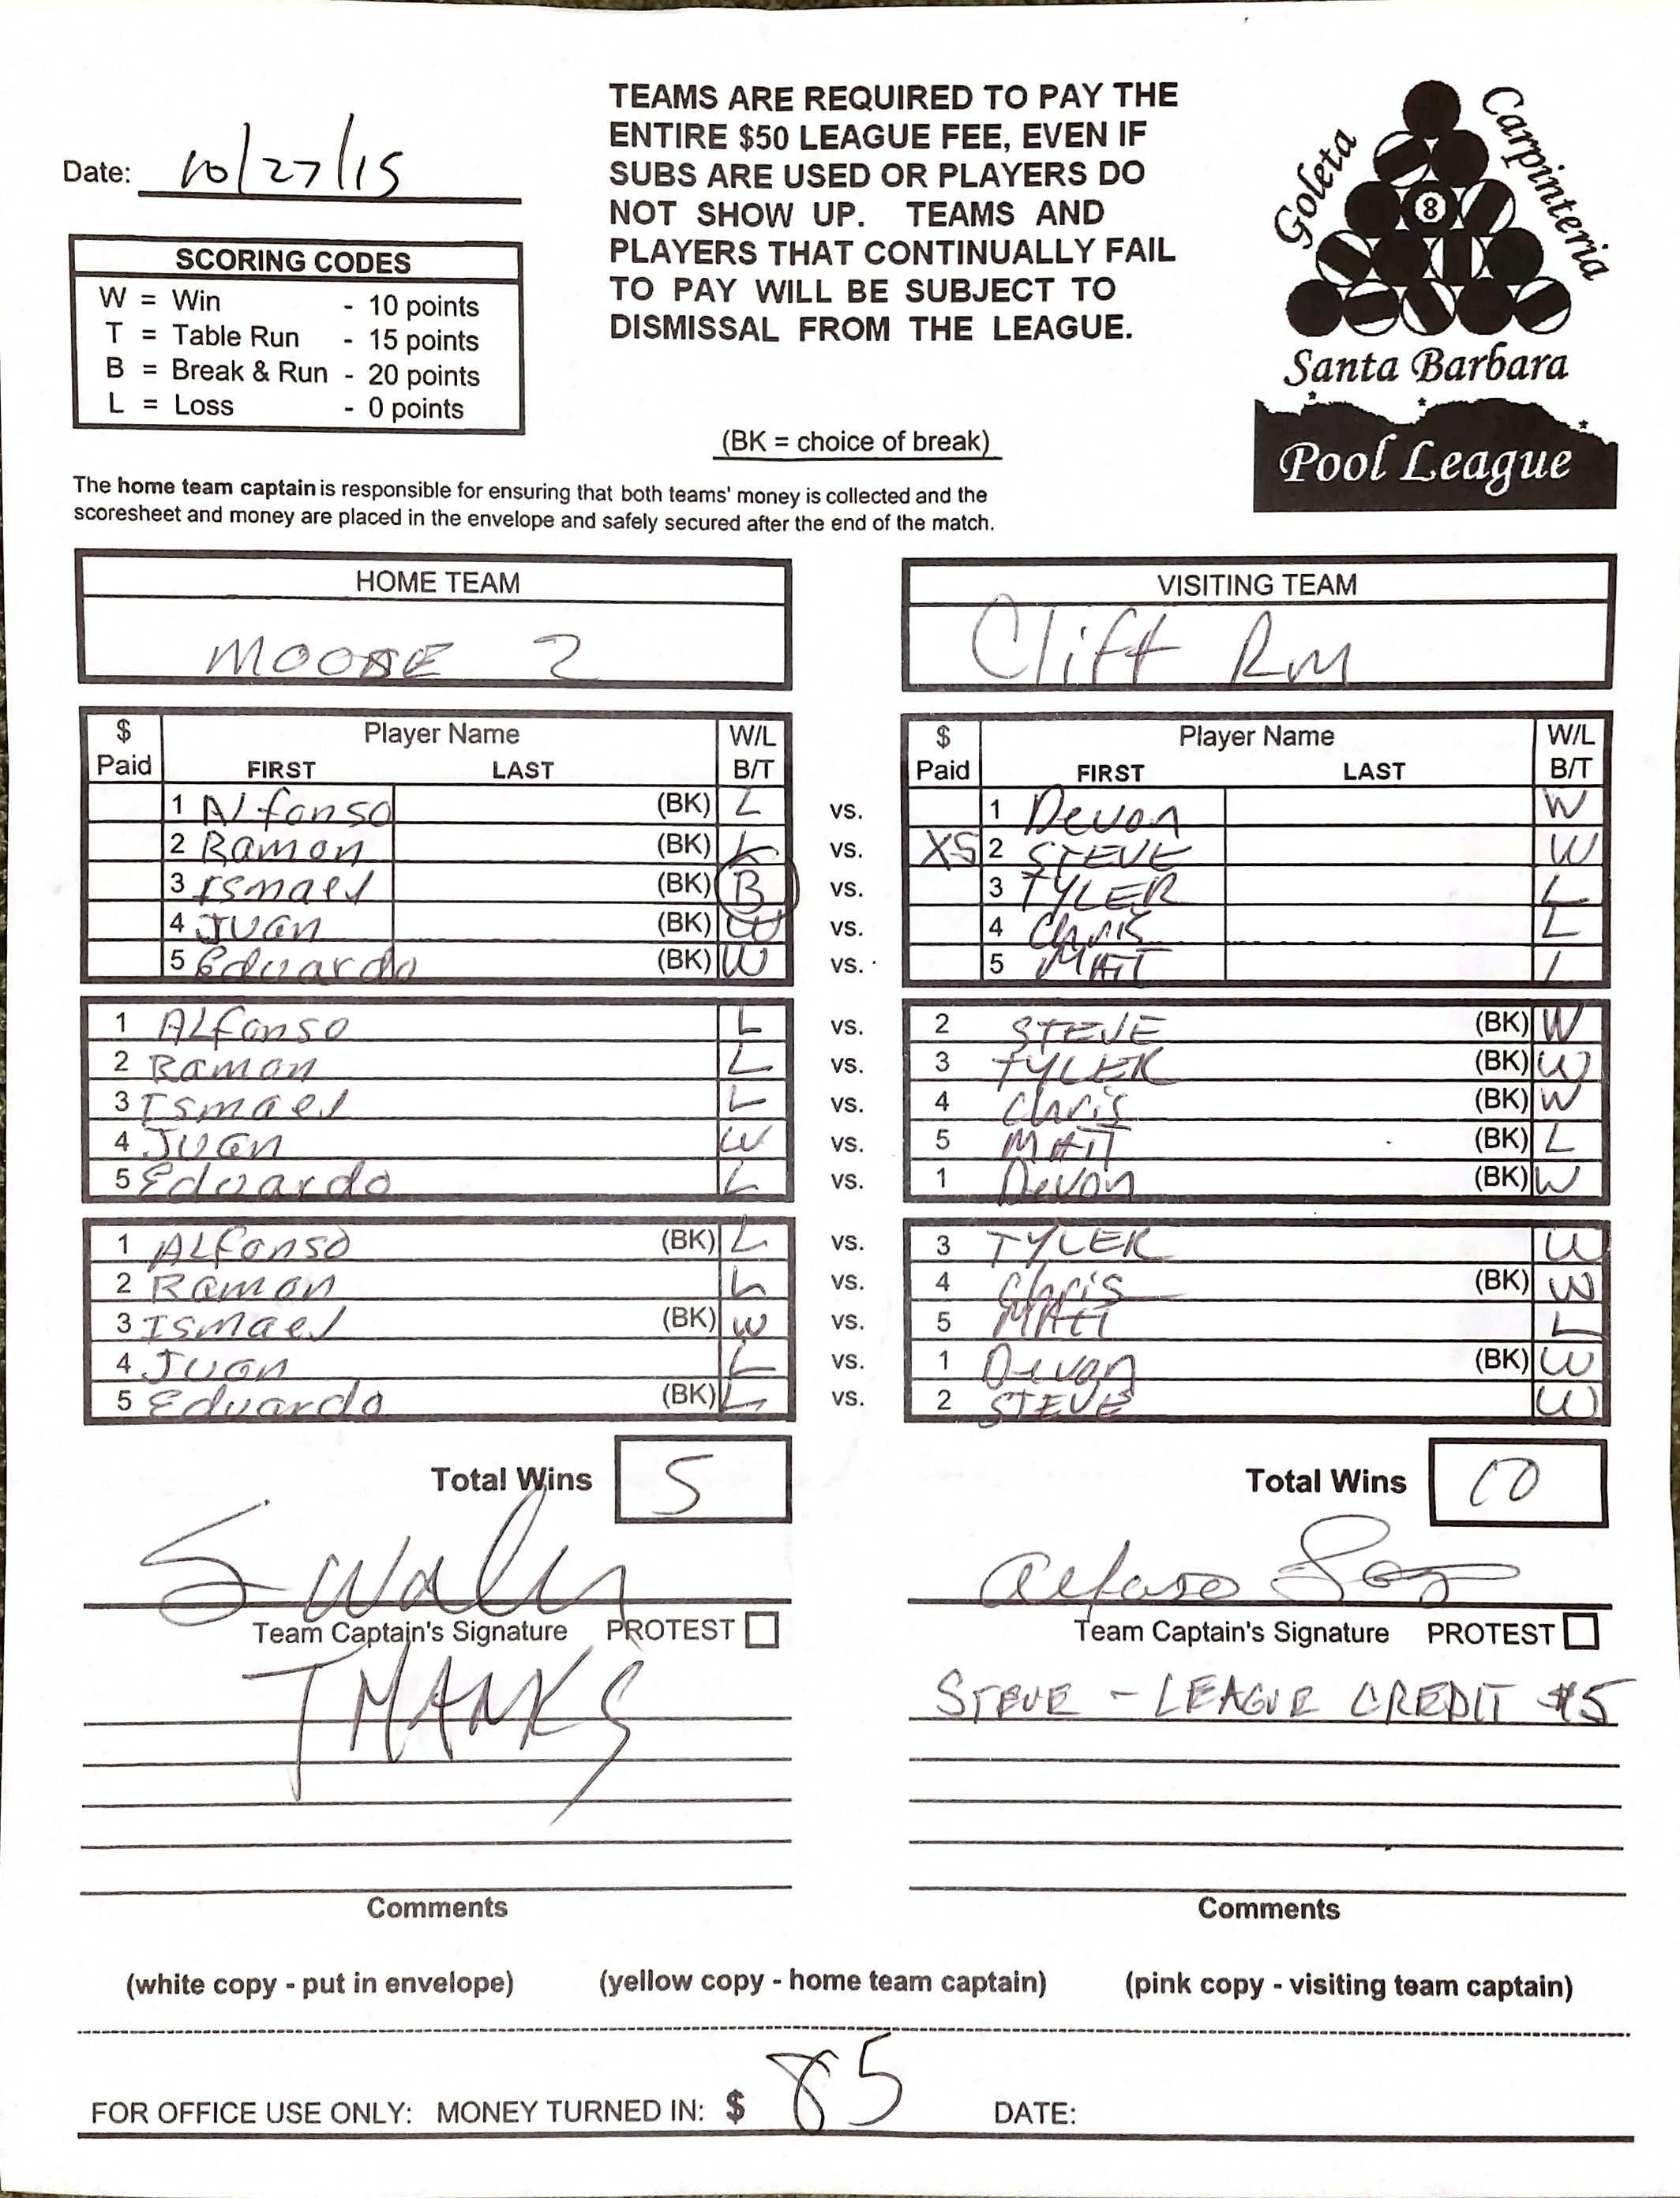 Date: 10/27/15
TEAMS ARE REQUIRED TO PAY THE
ENTIRE $50 LEAGUE FEE, EVEN IF
SUBS ARE USED OR PLAYERS DO
NOT SHOW UP. TEAMS AND
PLAYERS THAT CONTINUALLY FAIL
TO PAY WILL BE SUBJECT TO
DISMISSAL FROM THE LEAGUE.
Goleta
Carpinteria
8
Santa Barbara
Pool League
SCORING CODES
W = Win - 10 points
T = Table Run - 15 points
B = Break & Run - 20 points
L = Loss - 0 points
(BK = choice of break)
The home team captain is responsible for ensuring that both teams' money is collected and the
scoresheet and money are placed in the envelope and safely secured after the end of the match.
HOME TEAM VISITING TEAM
MOOSE 2 Cliff RM
$ Paid Player Name FIRST LAST W/L B/T $ Paid Player Name FIRST LAST W/L B/T
1 ALfonso (BK) L vs. 1 Devon W
2 Ramon (BK) L vs. XS 2 STEVE W
3 Ismael (BK) B vs. 3 TYLER L
4 JUan (BK) W vs. 4 Chris L
5 Eduardo (BK) W vs. 5 MATT L
1 ALfonso L vs. 2 STEVE (BK) W
2 Ramon L vs. 3 TYLER (BK) W
3 Ismael L vs. 4 Chris (BK) W
4 JUan W vs. 5 MATT (BK) L
5 Eduardo L vs. 1 Devon (BK) W
1 ALfonso (BK) L vs. 3 TYLER W
2 Ramon L vs. 4 Chris (BK) W
3 Ismael (BK) W vs. 5 MATT L
4 JUan L vs. 1 Devon (BK) W
5 Eduardo (BK) L vs. 2 STEVE W
Total Wins 5 Total Wins 10
Team Captain's Signature PROTEST Team Captain's Signature PROTEST
THANKS STEVE - LEAGUE CREDIT $5
Comments Comments
(white copy - put in envelope) (yellow copy - home team captain) (pink copy - visiting team captain)
FOR OFFICE USE ONLY: MONEY TURNED IN: $ 85 DATE: